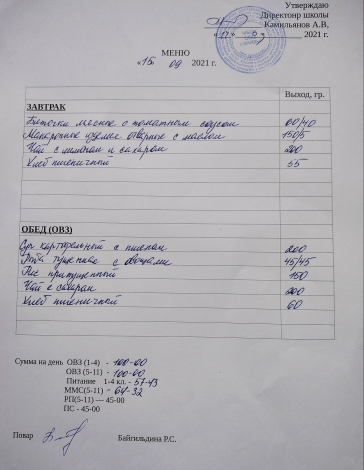 Утверждаю
Директоир школы
Камильянов А.В,
«17» 2021 г.
МЕНЮ
«15 09 2021 г.
Выход, гр.
ЗАВТРАК
Биточки мясные с томатным соусом 60/40
Макаронные изделия отварные с маслом 150/5
Чай с лимоном и сахаром 200
Хлеб пшеничный 55
ОБЕД (ОВЗ)
Суп картофельный с пшеном 200
тушеная с овощами 45/45
Рис припущенный 150
Чай с сахаром 200
Хлеб пшеничный 60
Сумма на день ОВЗ (1-4) - 100-00
ОВЗ (5-11) - 100-00
Питание 1-4 кл. - 57-43
ММС(5-11) - 64-32
РП(5-11) — 45-00
ПС - 45-00
Повар Байгильдина Р.С.